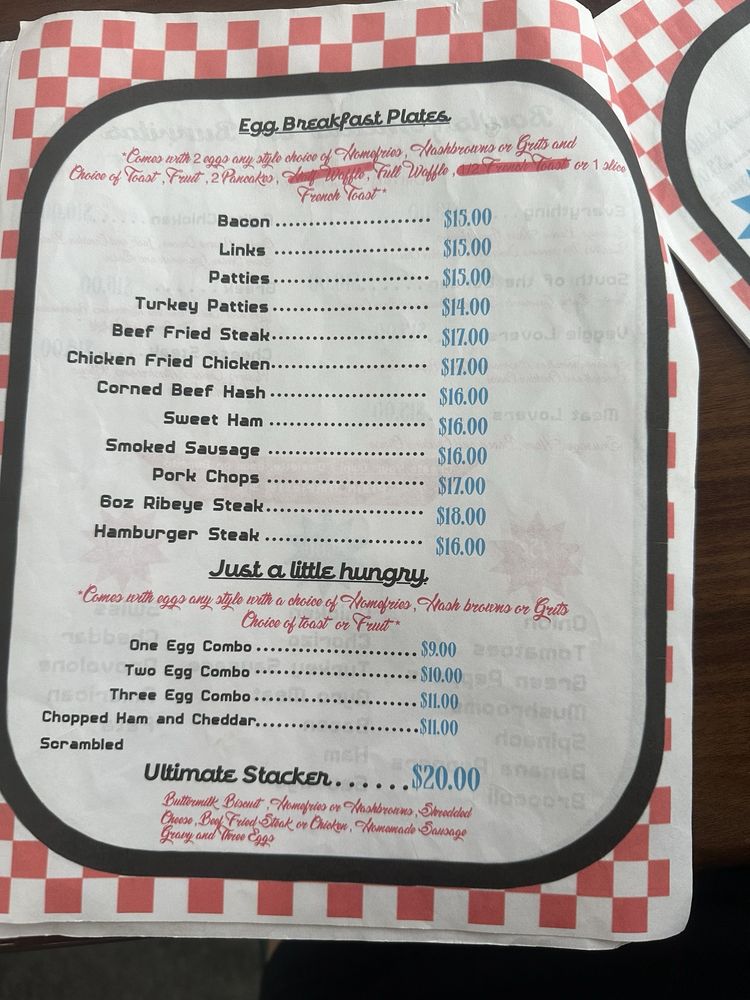 Egg Breakfast Plates
*Comes with 2 eggs any style choice of Homefries, Hashbrowns or Grits and
Choice of Toast, Fruit, 2 Pancakes, Half Waffle, Full Waffle, 1/2 French Toast or 1 slice
French Toast*
Bacon ........................ $15.00
Links ........................ $15.00
Patties........................ $15.00
Turkey Patties........................ $14.00
Beef Fried Steak........................ $17.00
Chicken Fried Chicken........................ $17.00
Corned Beef Hash ........................ $16.00
Sweet Ham ........................ $16.00
Smoked Sausage ........................ $16.00
Pork Chops ........................ $17.00
6oz Ribeye Steak........................ $18.00
Hamburger Steak ........................ $16.00
Just a little hungry
*Comes with eggs any style with a choice of Homefries, Hash browns or Grits
Choice of toast or Fruit*
One Egg Combo ........................ $9.00
Two Egg Combo ........................ $10.00
Three Egg Combo ........................ $11.00
Chopped Ham and Cheddar........................ $11.00
Scrambled
Ultimate Stacker....... $20.00
Buttermilk Biscuit, Homefries or Hashbrowns, Shredded
Cheese, Beef Fried Steak or Chicken, Homemade Sausage
Gravy and Three Eggs